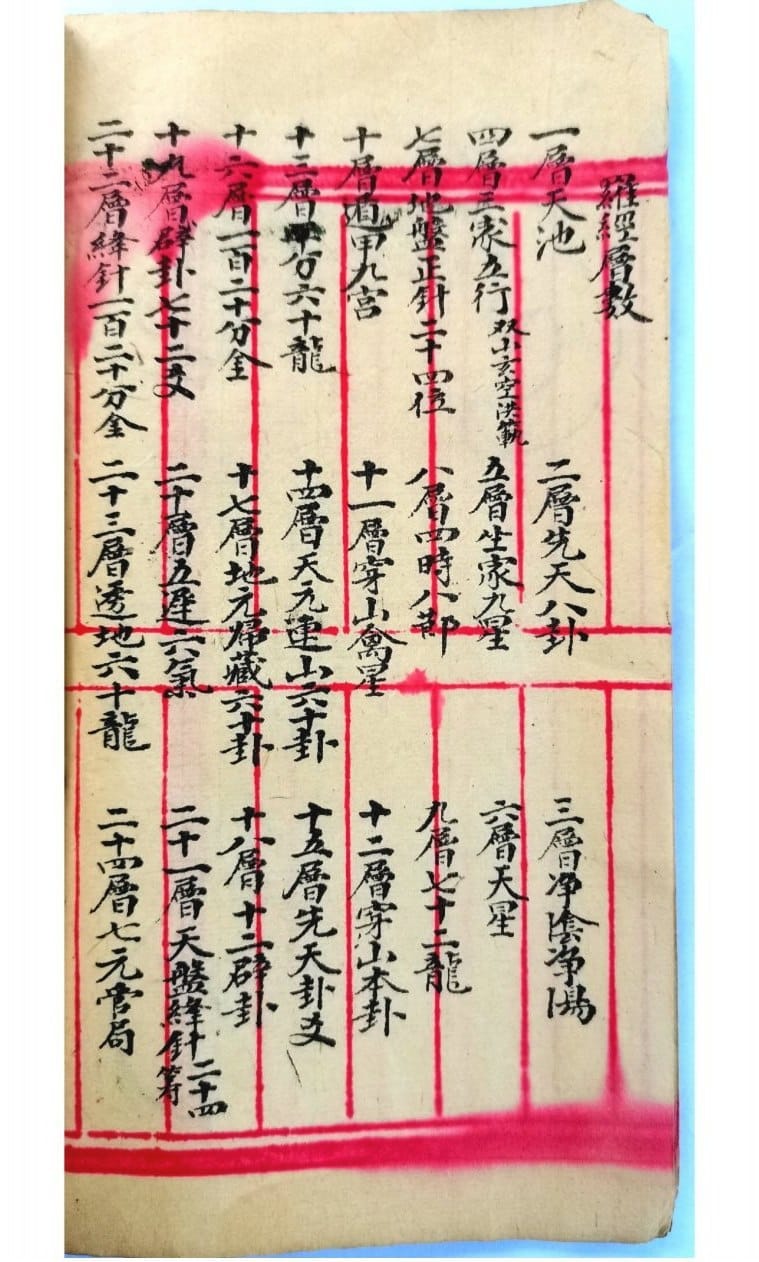 羅經層數
一層天池 二層先天八卦 三層净陰净陽
四層三家五行 双山玄空洪範 五層坐家九星 六層天星
七層地盤正針二十四位 八層四時八節 九層七十二龍
十層遁甲九宮 十一層穿山禽星 十二層穿山本卦
十三層平分六十龍 十四層天元連山六十卦 十五層先天卦爻
十六層一百二十分金 十七層地元歸藏六十卦 十八層十二辟卦
十九層辟卦七十二爻 二十層五運六氣 二十一層天盤縫針二十四
二十二層縫針一百二十分金 二十三層透地六十龍 二十四層七元管局